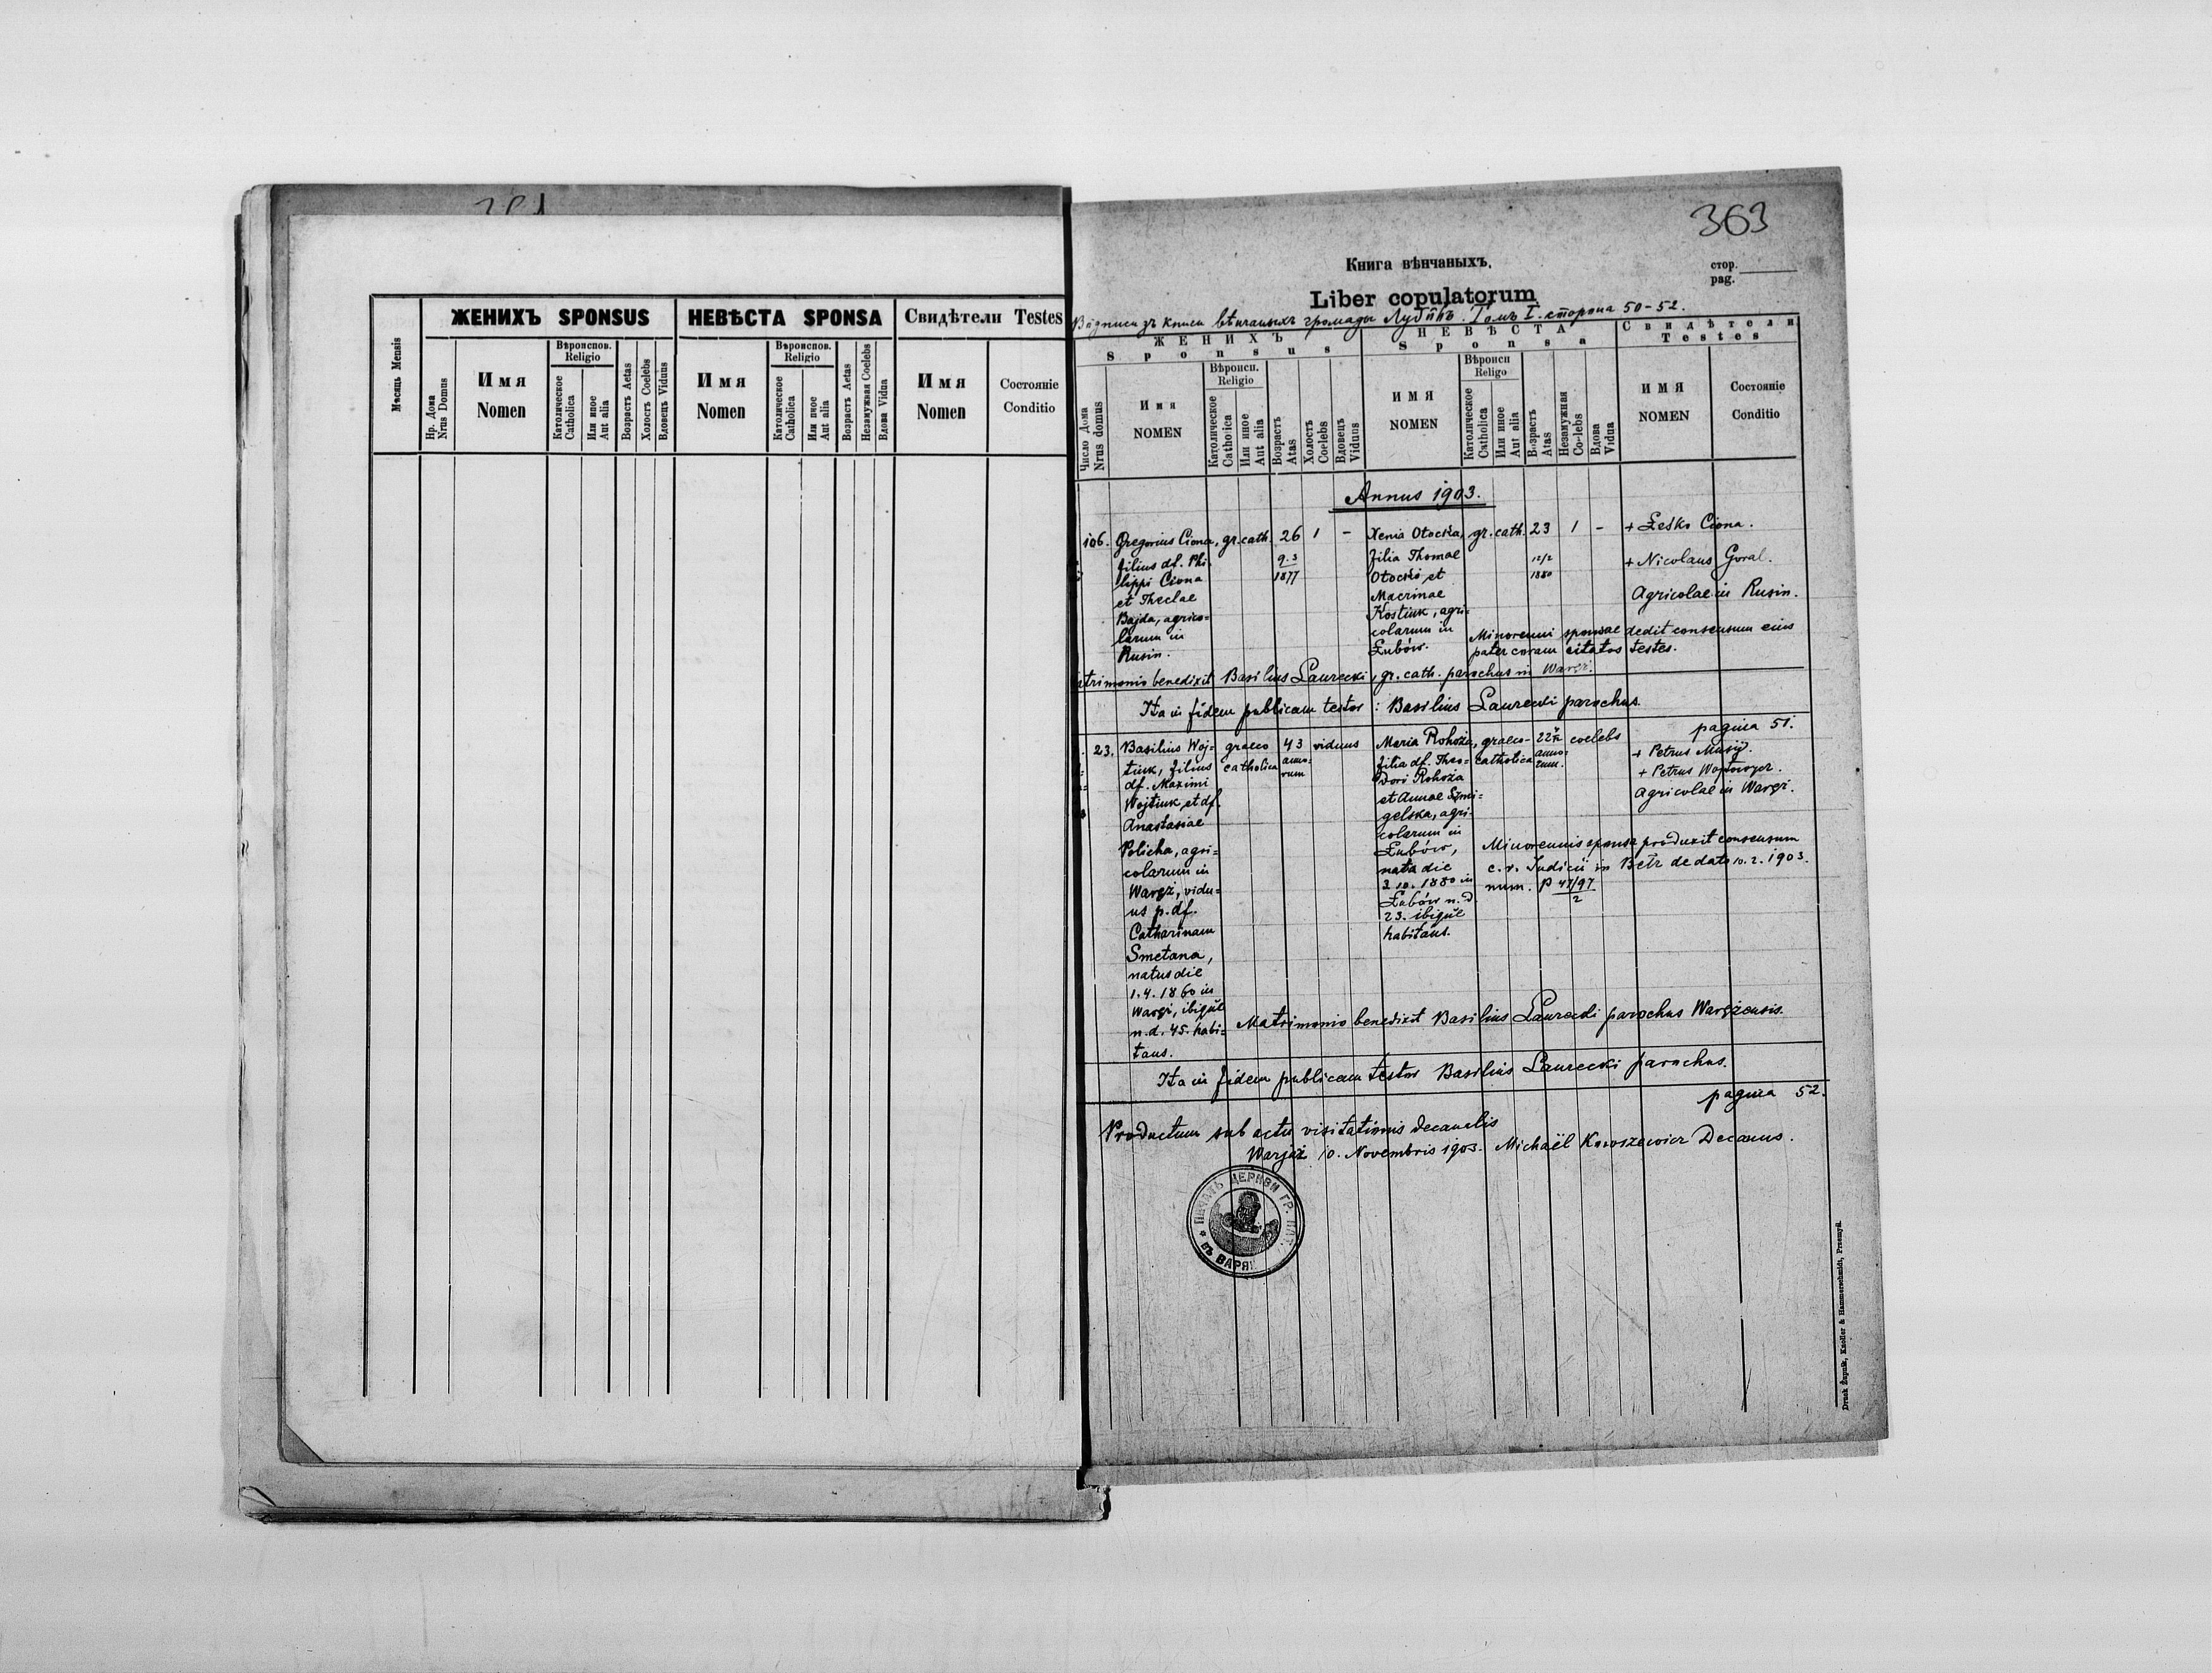 ЖЕНИХЪ SPONSUS
НЕВѢСТА SPONSA
Свидѣтели Testes
Мѣсяць Mensis
Нр. Дома
Nrus Domus
Имя
Nomen
Вѣроиспов.
Religio
Католическое
Catholica
Или иное
Aut alia
Возрастъ Aetas
Холостъ Coelebs
Вдовецъ Viduus
Имя
Nomen
Вѣроиспов.
Religio
Католическое
Catholica
Или иное
Aut alia
Возрастъ Aetas
Незамужная Coelebs
Вдова Vidua
Имя
Nomen
Состояніе
Conditio
363
Книга вѣнчаныхъ.
стор.
pag.
Liber copulatorum
вѣнчаныхъ громады Томъ I. сторона 50-52.
ЖЕНИХЪ
Sponsus
НЕВѢСТА
Sponsa
Свидѣтели
Testes
Число Дома
Nrus domus
Имя
NOMEN
Вѣроисп.
Religio
Католическое
Catholica
Или иное
Aut alia
Возрастъ
Atas
Холостъ
Coelebs
Вдовецъ
Viduus
ИМЯ
NOMEN
Вѣроисп
Religo
Католическое
Catholica
Или иное
Aut alia
Возрастъ
Atas
Незамужная
Co-lebs
Вдова
Vidua
ИМЯ
NOMEN
Состояніе
Conditio
Annus 1903.
106. Gregorius Ciona, gr. cath. 26 1 - Xenia Otocka, gr. cath. 23 1 - + Leśko Ciona.
filius df. Phi- 9.3 filia Thomae 12/2 + Nicolaus Goral.
lippi Ciona 1877 Otocki et 1880
et Theclae Macrinae Agricolae in Rusin.
Bajda, agrico= Kostiuk, agri=
larum in colarum in Minorenni sponsae dedit consensum eius
Rusin. Łubów. pater coram citatos testes.
trimonio benedixit Basilius Laurecki, gr. cath. parochus in Waręż.
Ita in fidem publicam testor: Basilius Laurecki parochus.
pagina 51.
23. Basilius Woj= graeco 43 viduus Maria Rohoża, graeco- 22 coelebs + Petrus Musij.
tiuk, filius catholica anno= filia df. Theo= catholica anno= + Petrus
df. Maximi rum dori Rohoża rum. agricolae in Waręż.
Wojtiuk, et df. et Annae Szmi=
Anastasiae gelska, agri=
colarum in
Policha, agri= Łubów, Minorennis sponsa produxit consensum
colarum in nata die c. r. Judicii in Bełz de dato 10. 2. 1903.
Waręż, vidu= 2 10. 1880 in num. P 47/97
2
us p. df. Łubów n. d.
23. ibique
Catharinam habitans.
Smetana,
natus die
1. 4. 1860 in
Waręż, ibique
n. d. 45. habi= Matrimonio benedixit Basilius Laurecki parochus Waręzensis.
tans.
Ita in fidem publicam testor Basilius Laurecki parochus.
pagina 52.
Productum sub actu visitationis decanalis
10. Novembris 1903. Michaël Decanus.
ПЕЧАТЬ ЦЕРКВИ ГР. КАТ.
ВЪ ВАРЯЖ
Druck Żupnik, Knoller & Hammerschmidt, Przemyśl.